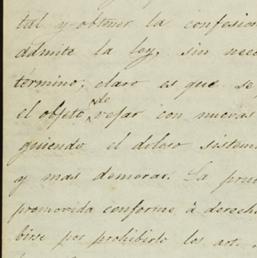 tal y obtener la confesion
admite la ley, sin nece
termino; claro es que se
el objeto de vejar con nuevas
guiendo el doloso sistem
y mas demorar. La prue
promovida conforme à derecho
birse por prohibirlo los art.